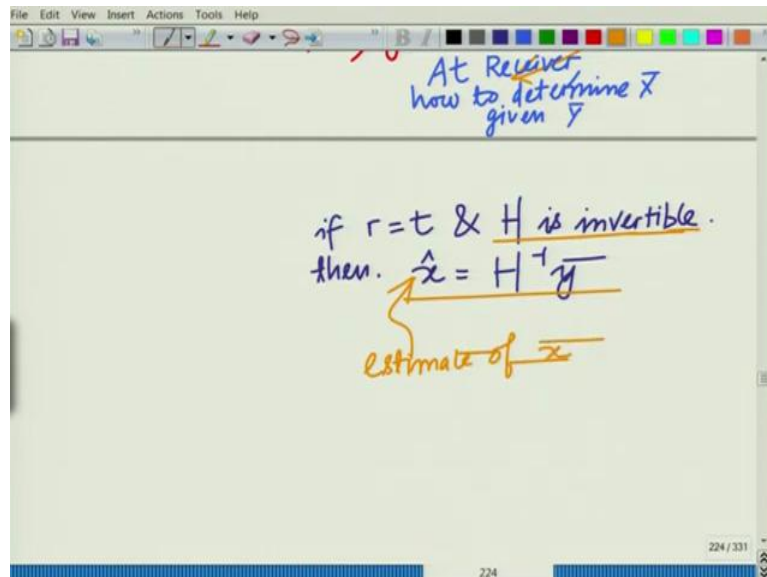 File Edit View Insert Actions Tools Help
B I
At Receiver
how to determine x̄
given ȳ
if r = t & H is invertible.
then. x̂ = H⁻¹ ȳ
estimate of x̄
224 / 331
224